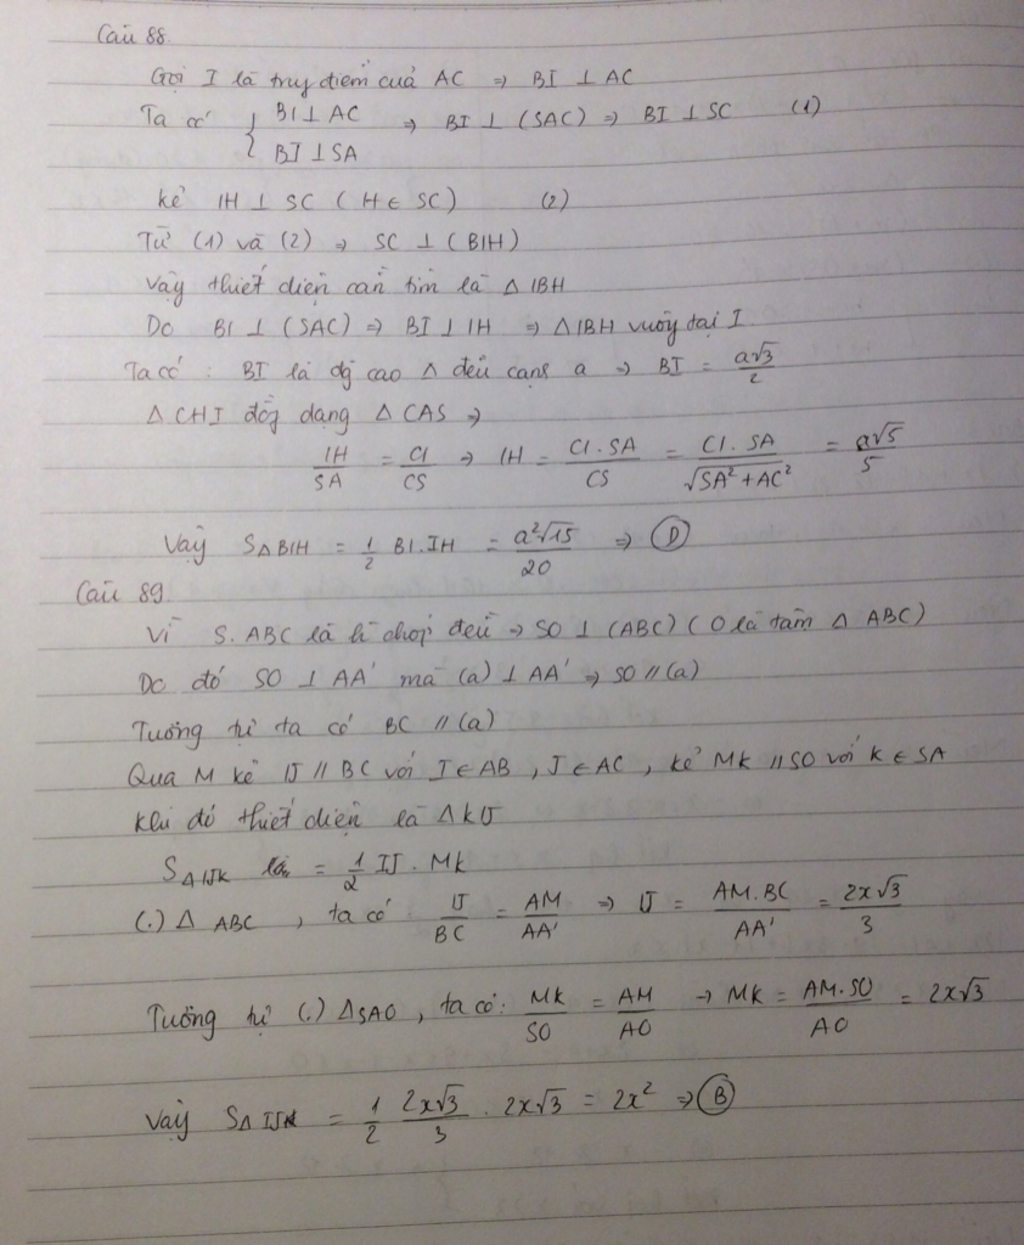 Câu 88.
Gọi I là trug điểm của AC ⇒ BI ⊥ AC
Ta có { BI ⊥ AC ⇒ BI ⊥ (SAC) ⇒ BI ⊥ SC (1)
BI ⊥ SA
kẻ IH ⊥ SC (H ∈ SC) (2)
Từ (1) và (2) ⇒ SC ⊥ (BIH)
Vậy thiết diện cần tìm là Δ IBH
Do BI ⊥ (SAC) ⇒ BI ⊥ IH ⇒ Δ IBH vuôg tại I.
Ta có : BI là đg cao Δ đều cạnh a ⇒ BI = a√3/2
Δ CHI đồg dạng Δ CAS ⇒
IH/SA = CI/CS ⇒ IH = CI.SA/CS = CI.SA/√SA²+AC² = a√5/5
Vậy SΔBIH = 1/2 BI.IH = a²√15/20 ⇒ D
Câu 89.
Vì S.ABC là h chóp đều ⇒ SO ⊥ (ABC) (O là tâm Δ ABC)
Do đó SO ⊥ AA' mà (a) ⊥ AA' ⇒ SO // (a)
Tương tự ta có BC // (a)
Qua M kẻ IJ // BC với I ∈ AB , J ∈ AC , kẻ MK // SO với K ∈ SA
Khi đó thiết diện là Δ KIJ
SΔIJK = 1/2 IJ . MK
(.) Δ ABC , ta có : IJ/BC = AM/AA' ⇒ IJ = AM.BC/AA' = 2x√3/3
Tương tự (.) ΔSAO , ta có : MK/SO = AM/AO → MK = AM.SO/AO = 2x√3
Vậy SΔ IJK = 1/2 2x√3/3 . 2x√3 = 2x² ⇒ B